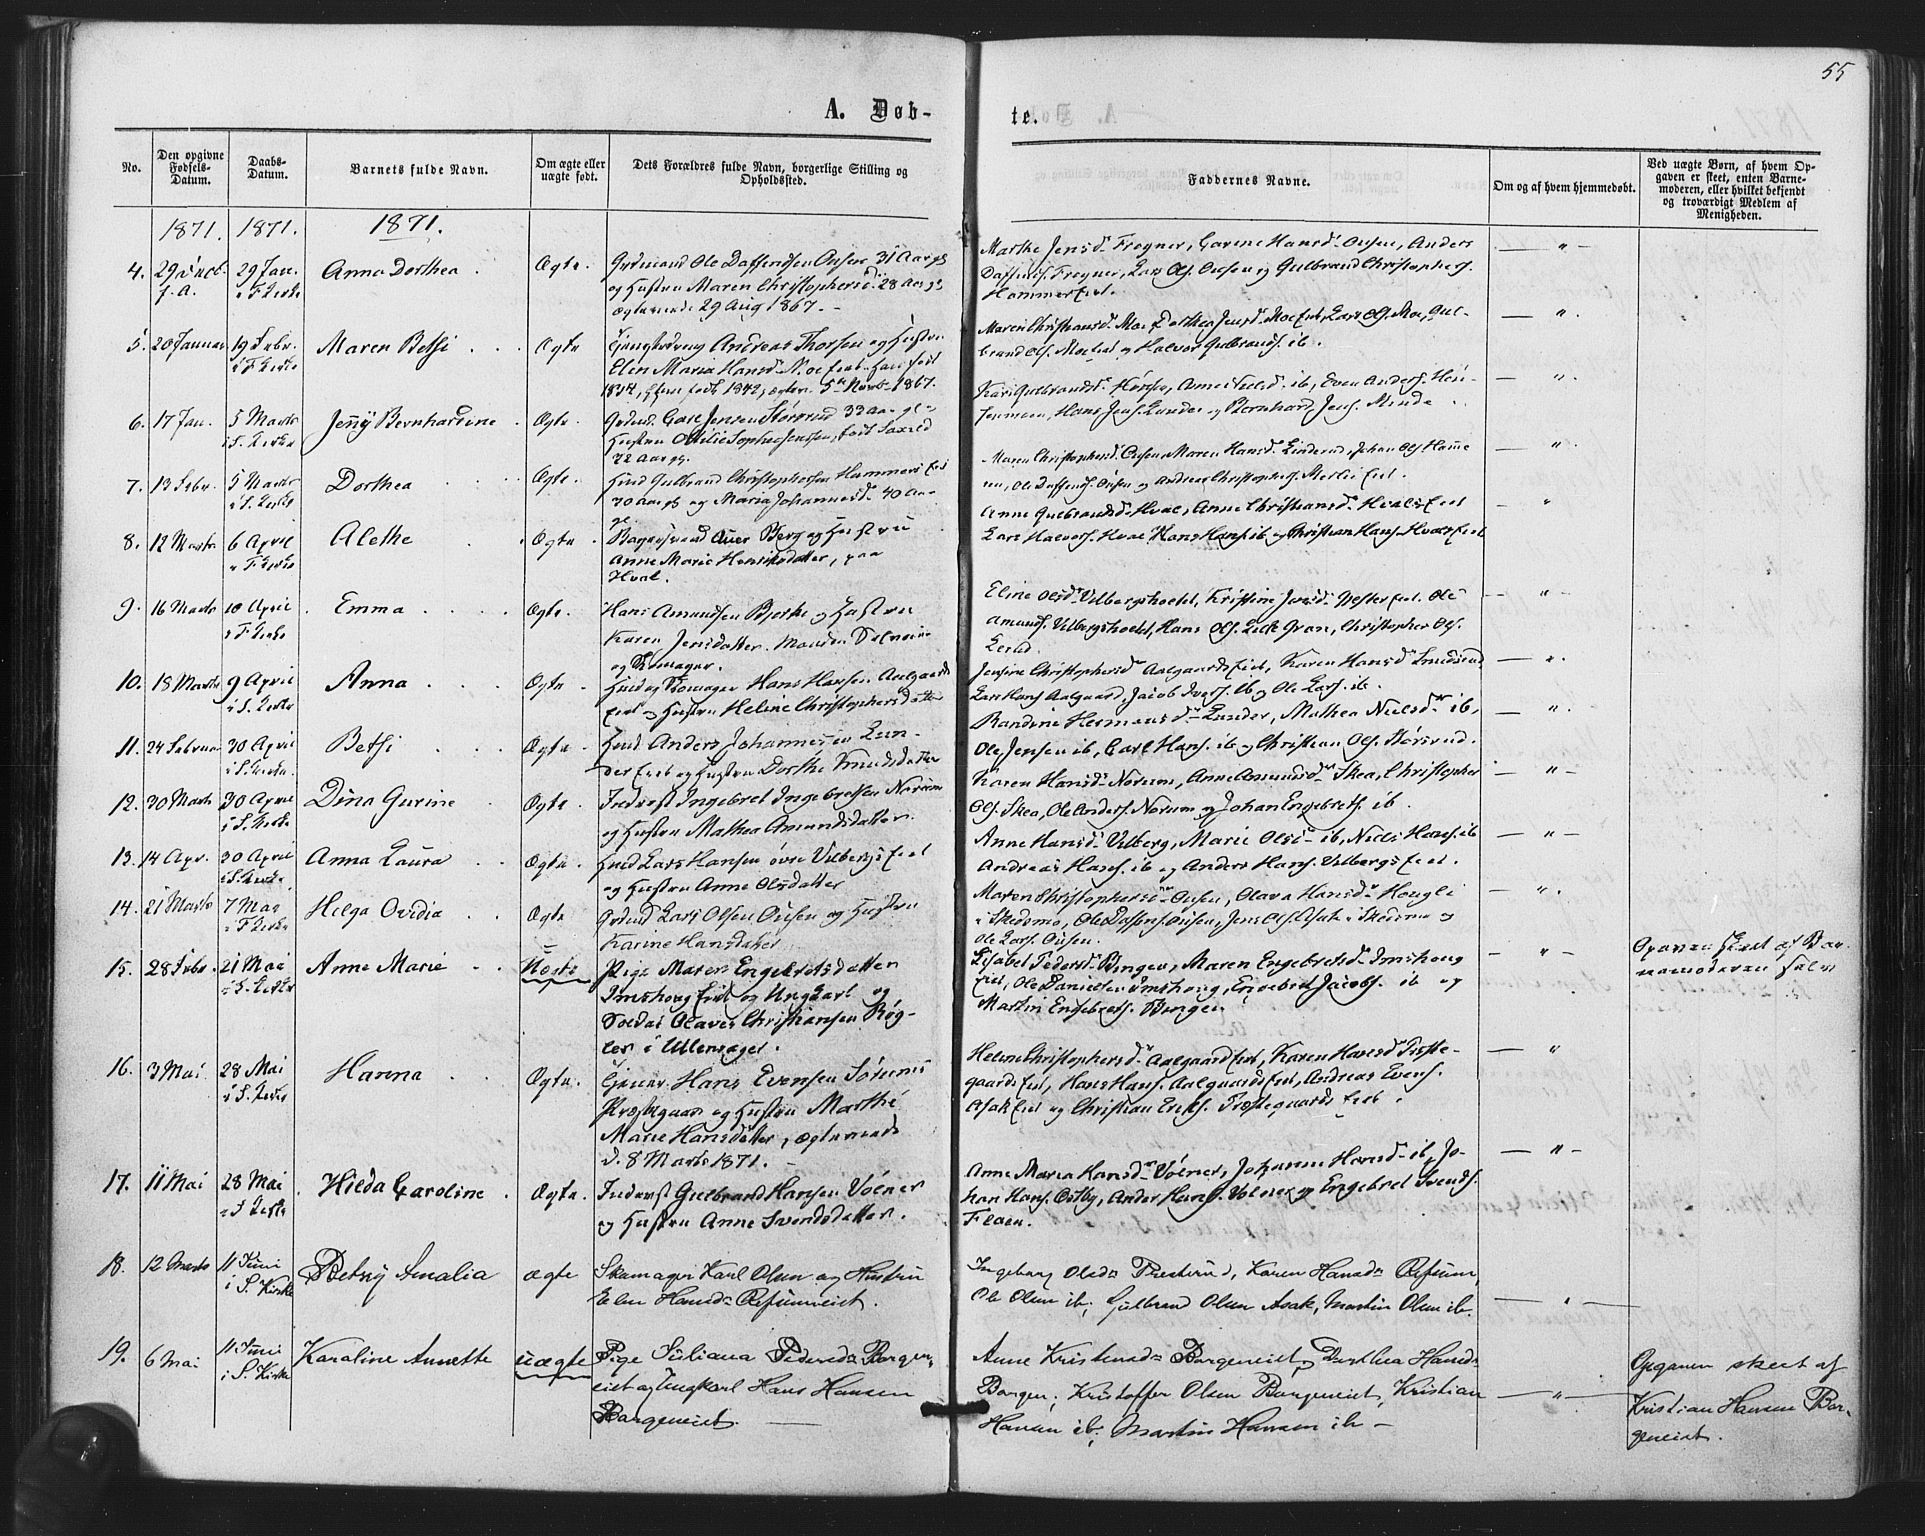 55
A. Døb-
te.
No.
Den opgivne Fødsels-Datum.
Daabs-Datum.
Barnets fulde Navn.
Om ægte eller uægte født.
Dets Forældres fulde Navn, borgerlige Stilling og Opholdssted.
Faddernes Navne.
Om og af hvem hjemmedøbt.
Ved uægte Børn, af hvem Op-
gaven er skeet, enten Barne-
moderen, eller hvilket bekjendt
og troværdigt Medlem af
Menigheden.
1871. 1871. 1871.
4. 29 29 Jan. Anna Dorthea Ægte. Gaardmand Ole Daffendsen Ousen 31 Aar gl.
f. A. i F Kirke og Hustru Maren Christophersd. 28 Aar gl.
Ægteviede 29 Aug 1867.
Marthe Jensd. Frogner, Hansd. Ousen, Anders
Daffends. Frogner, Lars Ols. Ousen og Gulbrand Christophers.
Hammereiet.
5. 20 Januar 19 Febr. Maren Betsi Ægte Andreas Thorsen og Hustru
i F Kirke Elen Maria Hansd. Moeiet
Maren Christiansd. Moe, Dorthea Jensd. Moeeiet, Lars Ols. Moe, Gul-
brand Ols. Moeeiet og Halvor Gulbrands. ib.
6. 17 Jan. 5 Marts Jenny Bernhardine Ægte. Carl Jensen Størsrud 33 Aar gl.
i S. Kirke Hustru Sophie Jenssen, født
Kari Gulbrandsd. Anders.
Hans Jens. Lunder og Bernhard Jens. Minde
7. 13 Febr. 5 Marts Dorthea Ægte. Gulbrand Christophersen Hammereiet
i S. Kirke og Maria Johannesd. 40 Aar
Maren Christophersd. Ousen, Maren Hansd. Linderud, Johan Ols.
Ole Daffends. Ousen og Andreas Christophers.
8. 12 Marts 6 April Alethe Ægte Berg og Hustru
i F Kirke Anne Marie Henriksdatter, paa
Hval.
Anne Gulbrandsd. Hval, Anne Christiansd. Hvalseiet
Lars Halvors. Hval, Hans Hans. ib og Christian Hans. Hvalseiet
9. 16 Marts 10 April Emma Ægte. Hans Amundsen Bjerke og Hustru
i F Kirke Karen Jensdatter. Manden
og Skomager.
Eline Olsd. Vilbergshoelet, Kristine Jensd. Ole
Amunds. Vilbergshoelet, Hans Ols. Christopher Ols.
10. 18 Marts 9 April Anna Ægte Husmd. og Skomager Hans Hansen Aalgaards
i S. Kirke eiet og Hustru Helene Christophersdatter
Jensine Christophersd. Aalgaardseiet, Karen Hansd.
Lars Hans. Aalgaard, Jacob Ivers. ib og Ole Lars. ib.
11. 24 Februar 30 April Betsi Ægte. Husmd. Anders Johannessen Lun-
i S. Kirke dereiet og Hustru Dorthe Knudsdatter
Randine Hermansd. Lunder, Mathea Nielsd. ib,
Ole Jensen ib, Carl Hans. ib og Christian Ols. Størsrud.
12. 30 Marts 30 April Dina Gurine Ægte. Inderst Ingebret Ingebretsen Norum
i S. Kirke og Hustru Mathea Amundsdatter.
Karen Hansd. Norum, Anne Amundsd. Skea, Christopher
Ols. Skea, Ole Anders. Norum og Johan Engebrets. ib.
13. 14 Apr. 30 April Anna Laura Ægte. Husmd. Lars Hansen øvre Vilbergseiet
i S. Kirke og Hustru Anne Olsdatter
Anne Hansd. Vilberg, Marie Olsd. ib, Niels Hans. ib
Andreas Hans. ib og Anders Hans. Vilbergseiet.
14. 21 Marts 7 Mai Helga Ovidia Ægte Grdmd. Lars Olsen Ousen og Hustru
i F Kirke Karine Hansdatter
Maren Christophersd. Ousen, Olava Hansd. Hougli
i Skedsmo, Ole Daffends. Ousen, Jens Ols. Asak i Skedsmo og
Ole Lars. Ousen.
15. 28 Febr. 21 Mai Anne Marie Uægte Pige Maren Engebretsdatter
i S. Kirke Imshougeiet og Ungkarl og
Soldat Olaves Christiansen Røg-
ler i Ullensager.
Lisabet Pedersd. Bingen, Maren Engebretsd. Imshoug
eiet, Ole Danielsen Imshoug, Engebret Jacobs. ib og
Martin Engebrets. Bingen
Opgaven skeet af Bar-
nemoderen selv
16. 3 Mai 28 Mai Hanna Ægte. Hans Evensen Sørums
i S. Kirke Præstegaard og Hustru Marthe
Marie Hansdatter, ægteviede
d. 8 Marts 1871.
Helene Christophersd. Aalgaardseiet, Karen Hansd. Præste-
gaardseiet, Hans Hans. Aalgaardseiet, Andreas Evens.
Asakeiet og Christian Eriks. Præstegaardseiet.
17. 11 Mai 28 Mai Hilda Caroline Ægte. Inderst Gulbrand Hansen Volner
i S Kirke og Hustru Anne Svendsdatter.
Anne Maria Hansd. Volner, Johanne Hansd. ib, Jo-
han Hans. Østby, Anders Hans. Volner og Engebret Svends.
Flaen.
18. 12 Marts 11 Juni Betsy Amalia ægte Skomager Karl Olsen og Hustru
i S. Kirke Elen Hansd. Refsumeiet.
Ingeborg Olsd. Presterud, Karen Hansd. Refsum,
Ole Olsen ib, Gulbrand Olsen Asak, Martin Olsen ib.
19. 6 Mai 11 Juni Karoline Annette uægte Pige Juliana Pedersd. Borgen-
i S. Kirke eiet og Ungkarl Hans Hansen
Borgeneiet.
Anne Kristensd. Borgeneiet, Dorthea Hansd.
Borgen, Kristoffer Olsen Borgeneiet, Kristian
Hansen ib, Martin Hansen ib
Opgaven skeet af
Kristian Hansen Bor-
geneiet.